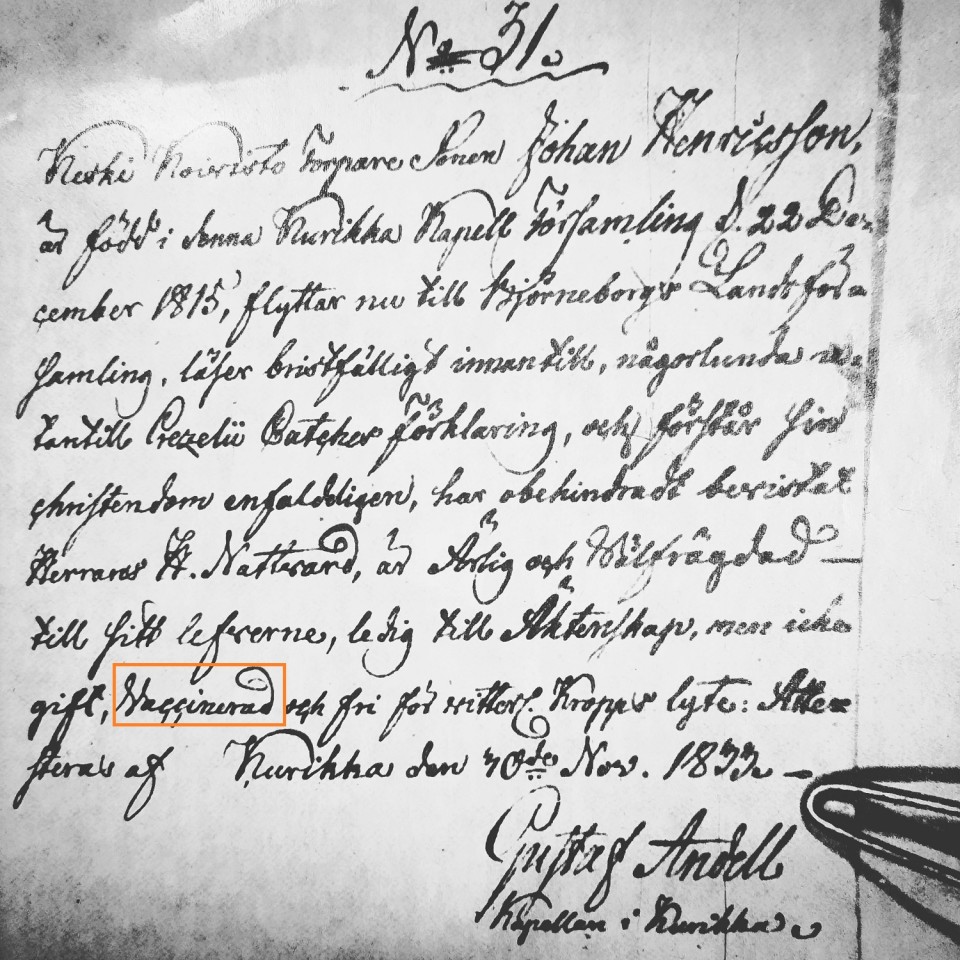 No 31.
Kiski Koivisto Torpare Sonen Johan Henricsson,
är född i denna Kurikka Kapell Församling d. 22 De=
cember 1815, flyttar nu till Björneborgs Landsför=
samling, läser bristfälligt innantill, någorlunda u=
tantill Catches förklaring, och förstår sin
christendom enfaldeligen, har obehindradt bevistat
Herrans H. Nattvard, är Ärlig och Wälfrägdad —
till sitt lefverne, ledig till Äktenskap, men icke
gift, Vaccinerad och fri för Kropps lyte: Atte=
steras af Kurikka den 30de Nov. 1833 —
Gustaf Andell
Kapellan i Kurikka